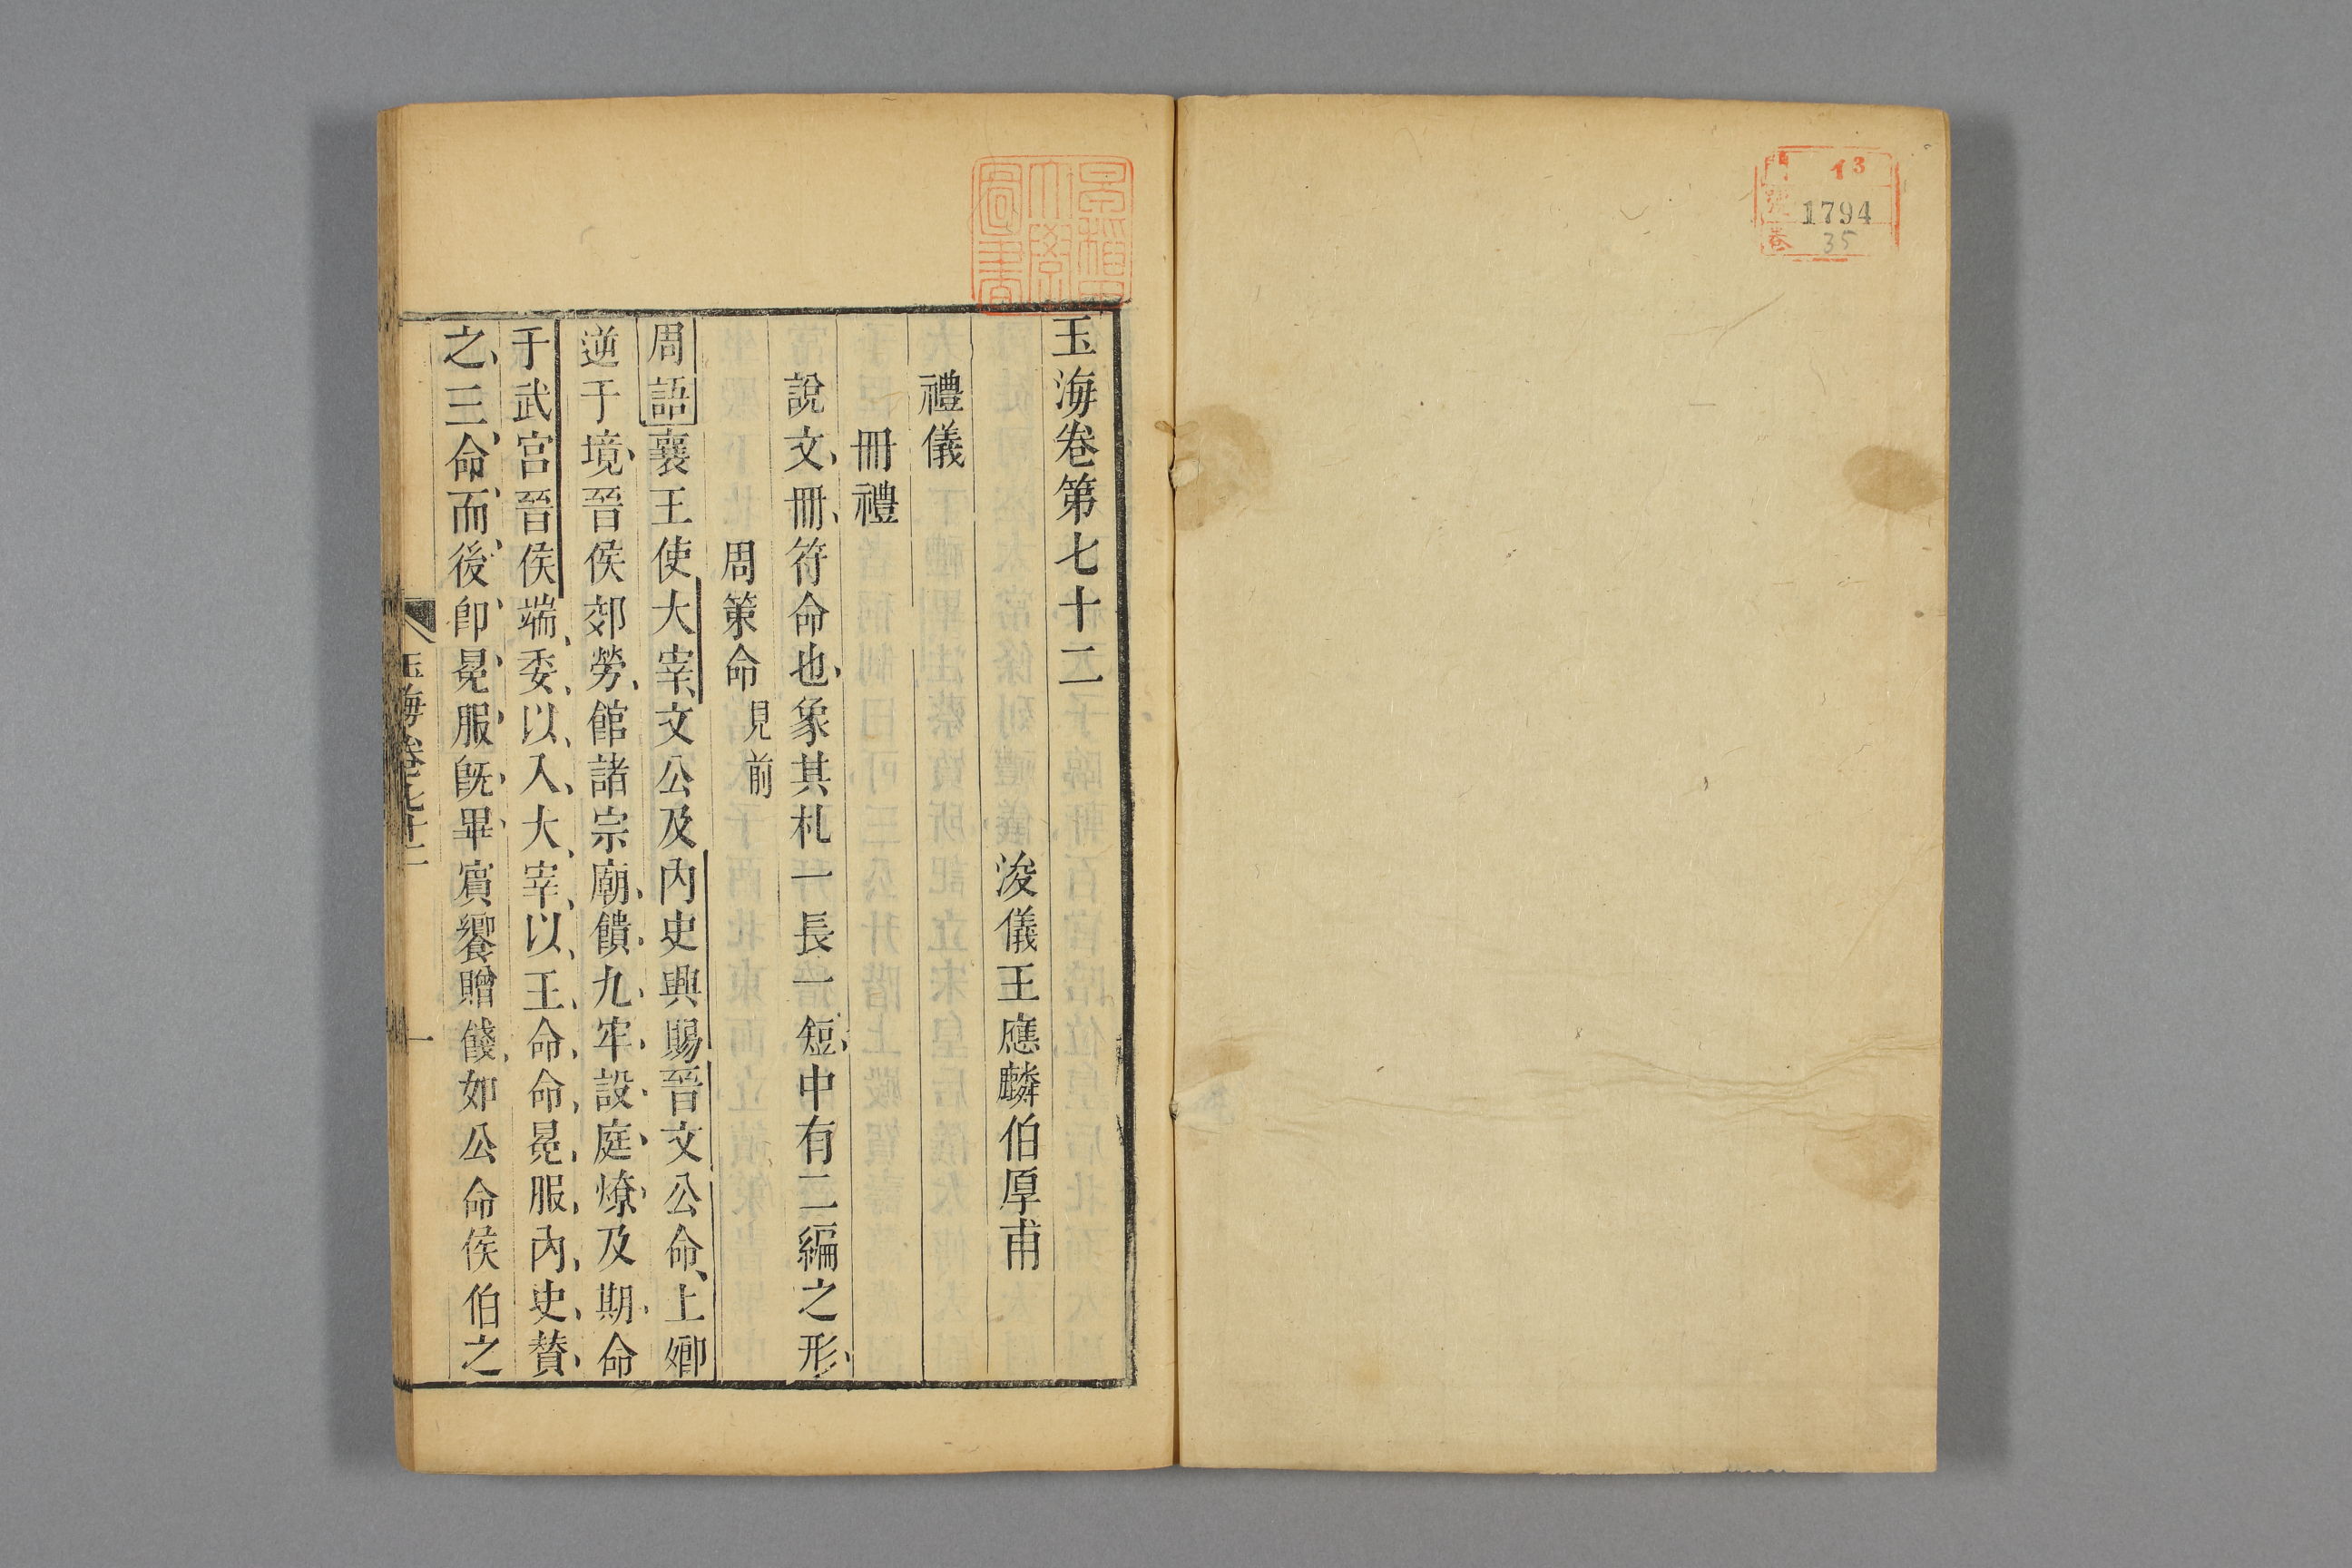 門 13
號 1794
卷 35
早稲田
大學
圖書
玉海卷第七十二
浚儀王應麟伯厚甫
禮儀
冊禮
說文冊符命也象其札一長一短中有二編之形
周策命見前
周語襄王使大宰文公及內史興賜晉文公命上卿
逆于境晉侯郊勞館諸宗廟饋九牢設庭燎及期命
于武宮晉侯端委以入大宰以王命命冕服內史贊
之三命而後卽冕服旣畢賔饗贈餞如公命侯伯之
玉海卷七十二
一